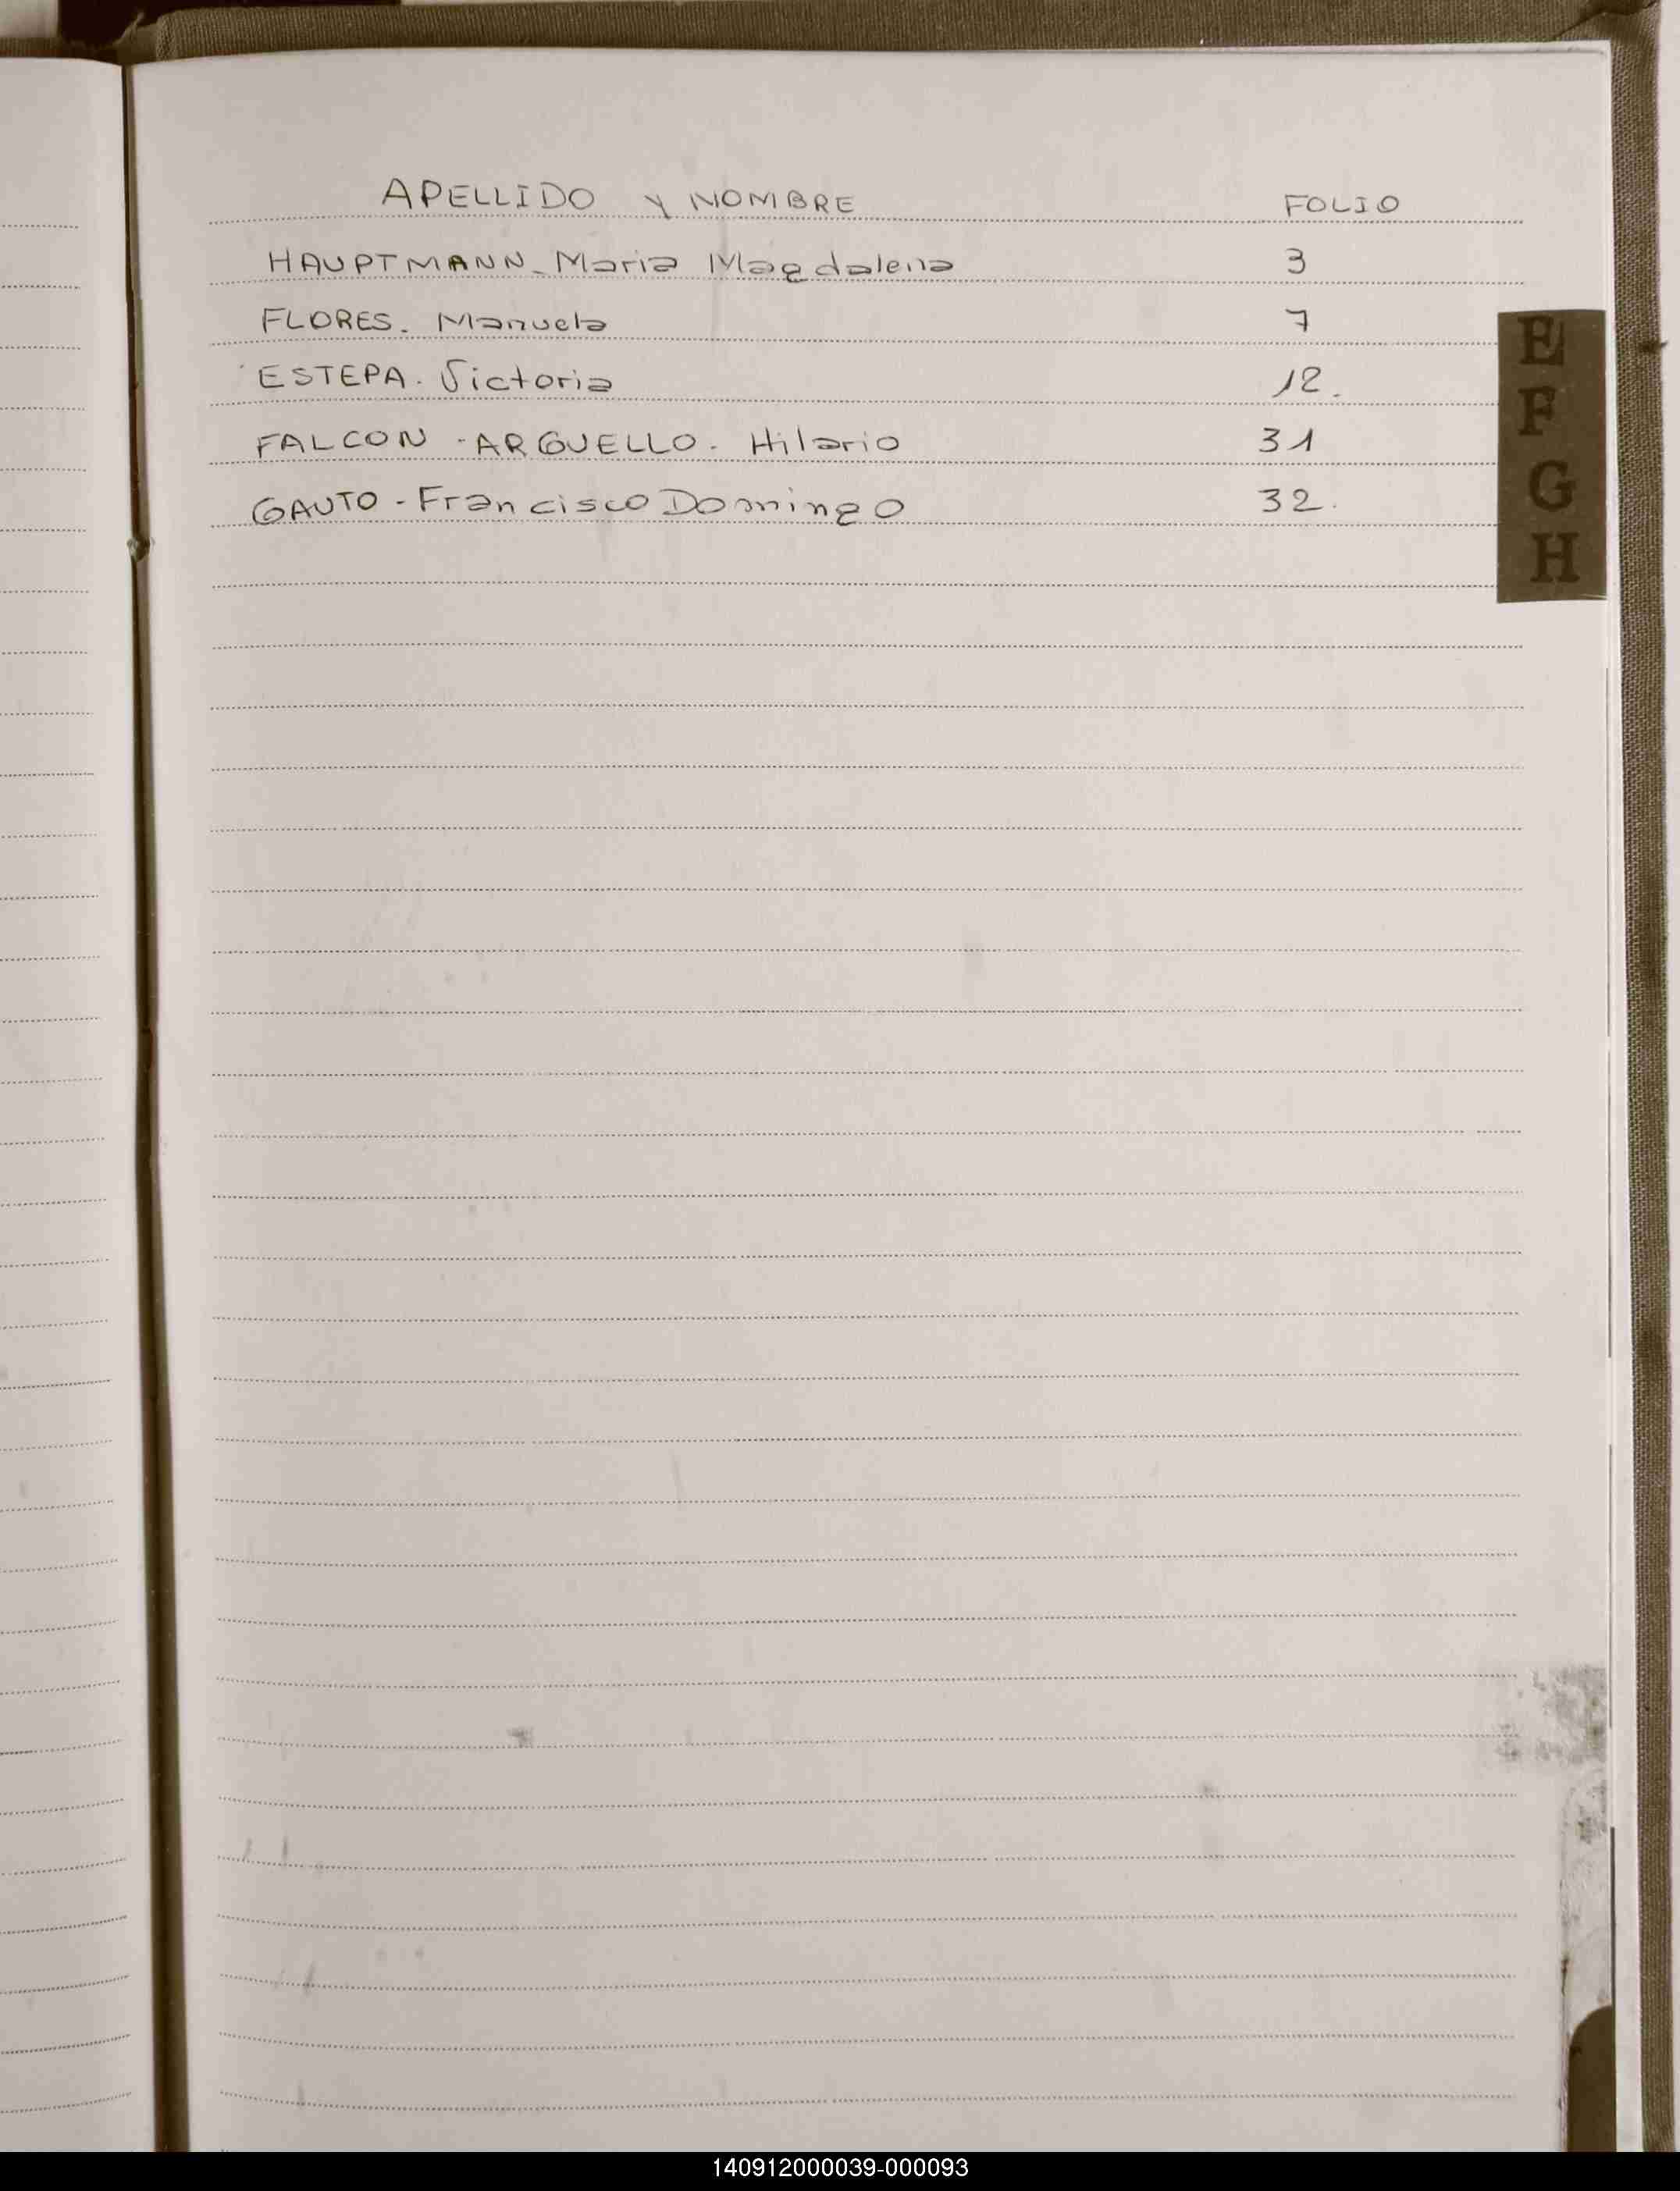 APELLIDO Y NOMBRE FOLIO
HAUPTMANN - Maria Magdalena 3
FLORES. Manuela 7
ESTEPA. Victoria 12.
FALCON - ARGUELLO - Hilario 31
GAUTO - Francisco Domingo 32.
E
F
G
H
140912000039-000093